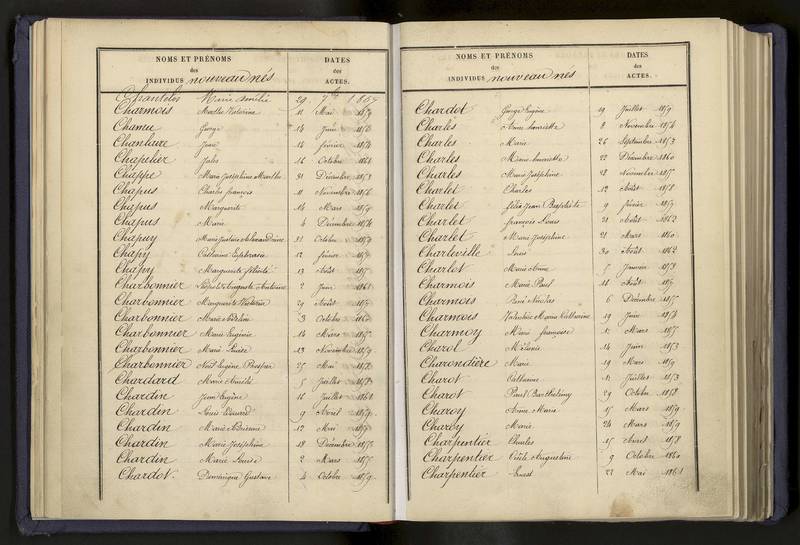 NOMS ET PRÉNOMS
des
INDIVIDUS nouveau nés
DATES
des
ACTES.
Chantelos Marie Amélie 29 7bre 1859
Charmois Marthe Victorine 11 Mai 1859
Chamu George 14 Juin
Chanture 14 février
Chapelier Jules 16 Octobre 1861
Chappe Marie Joséphine Marthe 31 Décembre 1853
Chapus Charles françois 11 Novembre 1856
Chapus Marguerite 14 Mars 1859
Chapus Marie 4 Décembre 1854
Chapuy Marie 31 Octobre 1859
Chapy Catherine 12 février
Chapy Marguerite félicité 13 Août
Charbonnier Léopold Auguste Antoine 2 Juin 1861
Charbonnier Marguerite Victorine 29 Août
Charbonnier Marie 3 Octobre 1860
Charbonnier Marie Eugénie 14 Mars
Charbonnier Marie Louise 13 Novembre 1859
Charbonnier Noël Eugène Prosper 25 Mai
Chardard Marie Amélie 5 Juillet 1858
Chardin Jean Eugène 16 Juillet 1861
Chardin Louis Edouard 9 Avril
Chardin Marie Adrienne 12 Mai
Chardin Marie Joséphine 18 Décembre 1855
Chardin Marie Louise 2 Mars
Chardot. Dominique Gustave 4 Octobre 1859
NOMS ET PRÉNOMS
des
INDIVIDUS nouveau nés
DATES
des
ACTES.
Chardot George Eugène 19 Juillet 1859
Charles Anne henriette 8 Novembre 1854
Charles Marie 26 Septembre 1853
Charles Marie henriette 22 Décembre 1860
Charles Marie Joséphine 28 Novembre 1855
Charlet Charles 12 Août 1858
Charlet félix Jean Baptiste 9 février
Charlet françois Louis 21 Août 1862
Charlet Marie Joséphine 21 Mars 1860
Charleville Louis 30 Août 1862
Charlot Marie Anne 5 Janvier 1853
Charmois Marie Paul 16 Août
Charmois René Nicolas 6 Décembre 1855
Charmois Valentine Marie Catherine 19 Juin 1856
Charmoy Marie françoise Mars 1855
Charol Mélanie 14 Juin 1853
Charondière Marie 19 Mars 1859
Charot Catherine Juillet 1853
Charot Paul Barthélémy 29 Octobre 1858
Charoy Anne Marie 15 Mars 1859
Charoy Marie 24 Mars 1859
Charpentier Charles 15 Avril 1858
Charpentier Cécile Augustine 9 Octobre 1860
Charpentier Ernest 22 Mai 1861